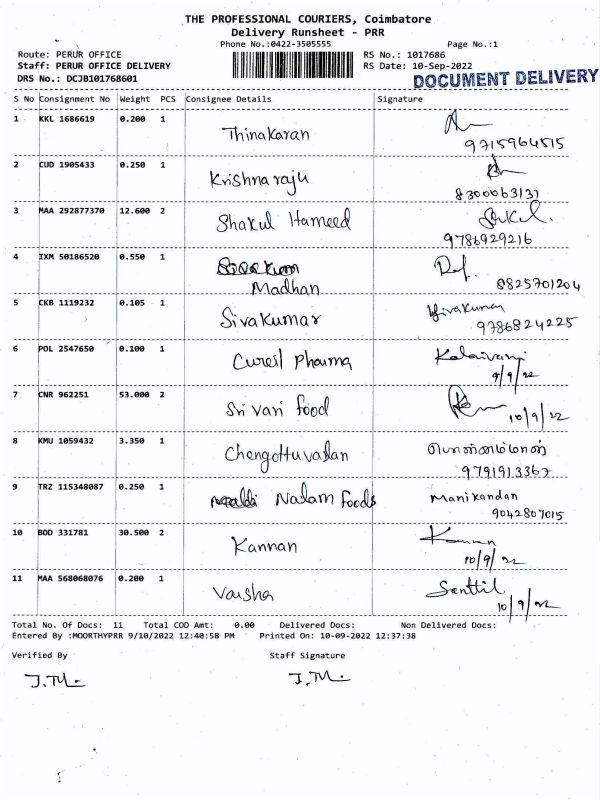 THE PROFESSIONAL COURIERS, Coimbatore
Delivery Runsheet - PRR
Phone No.:0422-3505555 Page No.:1
Route: PERUR OFFICE RS No.: 1017686
Staff: PERUR OFFICE DELIVERY RS Date: 10-Sep-2022
DRS No.: DCJB101768601 DOCUMENT DELIVERY
S No Consignment No Weight PCS Consignee Details Signature
1 KKL 1686619 0.200 1 Thinakaran
9715964515
2 CUD 1905433 0.250 1 Krishnaraju
8300063131
3 MAA 292877370 12.600 2 Shakul Hameed
9786929216
4 IXM 50186520 0.550 1
Madhan 8825701204
5 CKB 1119232 0.105 1 Sivakumar Sivakumar
9786824225
6 POL 2547650 0.100 1 Cureil Pharma Kalaivani
9/9/22
7 CNR 962251 53.000 2 Sri vari food
10/9/22
8 KMU 1059432 3.350 1 Chengottuvadan
9791913367
9 TRZ 115348087 0.250 1 Nalam Foods Manikandan
9042807015
10 BOD 331781 30.500 2 Kannan Kannan
10/9/22
11 MAA 568068076 0.200 1 Varsha Senthil
10/9/22
Total No. Of Docs: 11 Total COD Amt: 0.00 Delivered Docs: Non Delivered Docs:
Entered By :MOORTHYPRR 9/10/2022 12:40:58 PM Printed On: 10-09-2022 12:37:38
Verified By Staff Signature